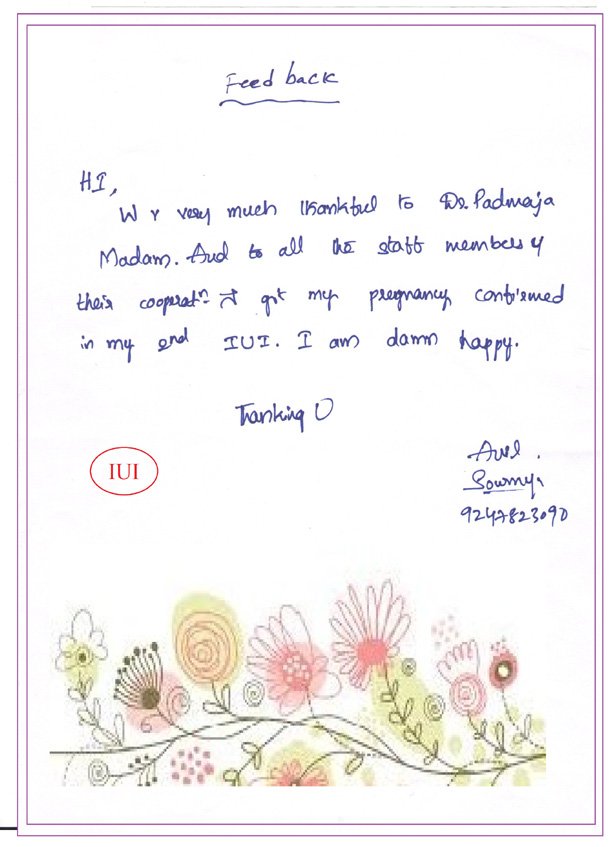 Feed back
HI,
W r very much thankful to Dr. Padmaja
Madam. And to all the staff members 4
their cooperatn. I got my pregnancy confirmed
in my 2nd IUI. I am damn happy.
Thanking U
IUI
Sowmya
9247823090